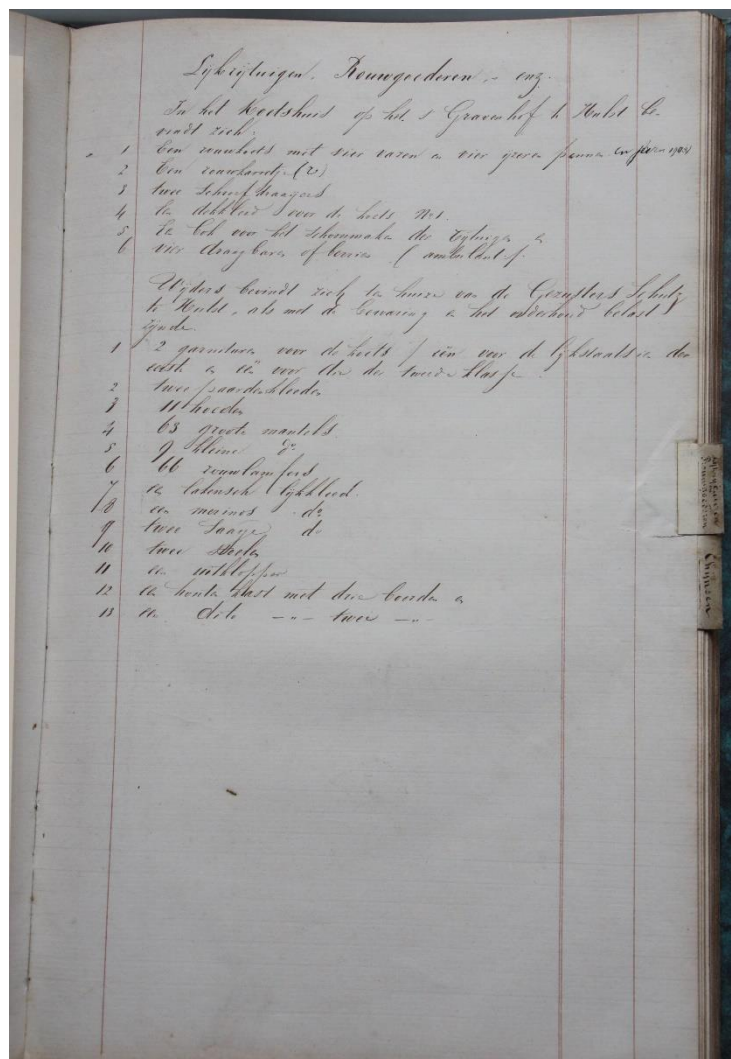 Lijkrijtuigen, Rouwgoederen, - enz.
In het Koetshuis op het s Gravenhof te Hulst be-
vindt zich:
1 Een rouwkoets met vier vazen en vier pannen
2 Een rouwkoetje (2)
3 twee
4 Een dekkleed voor de koets No 1.
5 Een bok voor het schoonmaken der rijtuigen en
6 vier draagbaren of beuren
Wijders bevindt zich ten huize van de Gezusters Schutz
te Hulst, als met de bewaring en het onderhoud belast
zijnde.
1 2 garnituren voor de koets / één voor de lijkstaatsie der
eerste en een voor die der tweede klasse
2 twee paardenkleeden
3 11 hoeden
4 63 groote mantels
5 9 kleine do
6 66 rouwlamfers
7 een lakensch lijkkleed.
8 een merinos do
9 twee do
10 twee
11 een uitklopper
12 een houten kast met drie borden en
13 een dito -„- twee -„-
Rouwgoederen